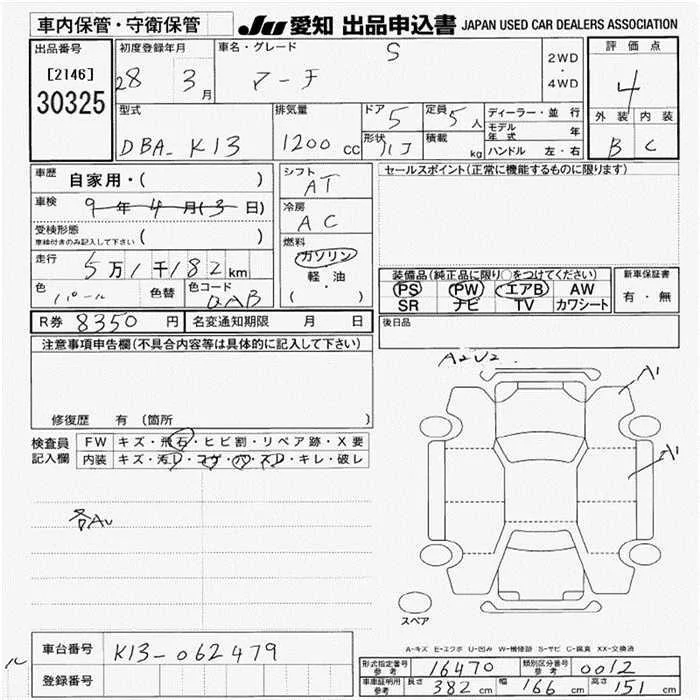 車内保管・守衛保管 JU 愛知 出品申込書 JAPAN USED CAR DEALERS ASSOCIATION
出品番号 初度登録年月 車名・グレード 評価点
[2146] 28 3月 マーチ S 2WD・4WD 4
30325
型式 排気量 ドア 5 定員 5人 ディーラー・並行 外装 内装
DBA-K13 1200cc 形状 積載 kg モデル年式 年
ハンドル 左・右 B C
車歴 自家用・( )
シフト AT
セールスポイント(正常に機能するものに限ります)
車検 9年4月(3日)
冷房 AC
受検形態
車検付きのみ記入して下さい ( )
燃料 ガソリン 軽・油 ( )
走行 5万1千182km
装備品(純正品に限り○をつけてください) 新車保証書
色 パール 色替 色コード QAB
PS PW エアB AW 有・無
SR ナビ TV カワシート
R券 8350円 名変通知期限 月 日
後日品
注意事項申告欄(不具合内容等は具体的に記入して下さい)
修復歴 有 (箇所 )
A2U2
A1
A1
検査員記入欄 FW キズ・飛石・ヒビ割・リペア跡・X要
内装 キズ・汚レ・コゲ・穴・スレ・キレ・破レ
各AU
スペア
A-キズ E-エクボ U-凹み W-補修跡 S-サビ C-腐食 XX-交換済
車台番号 K13-062479
登録番号
形式指定番号 参考 16470 類別区分番号 参考 0012
車車証明用 参考 長さ 382cm 幅 166cm 高さ 151cm